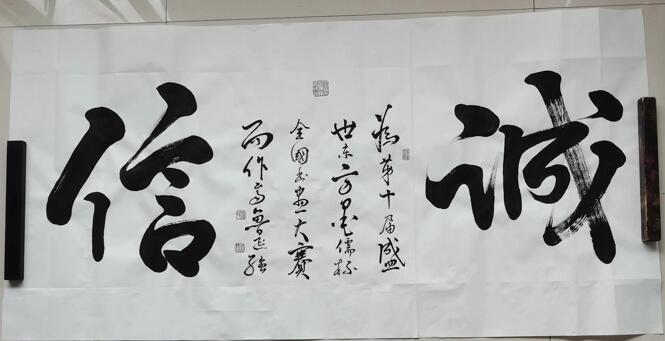 诚
为第十届盛
世东方墨儒杯
全国书画大赛
而作高鲁延強
信